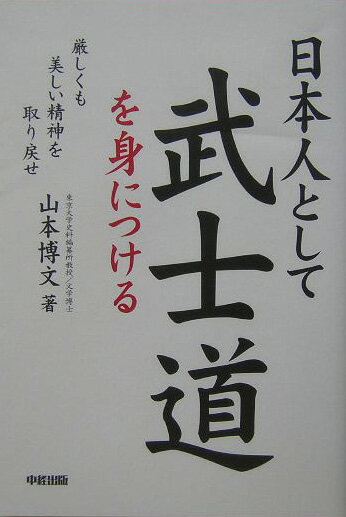 日本人として
武士道
を身につける
厳しくも
美しい精神を
取り戻せ
東京大学史料編纂所教授/文学博士
山本博文 著
中経出版